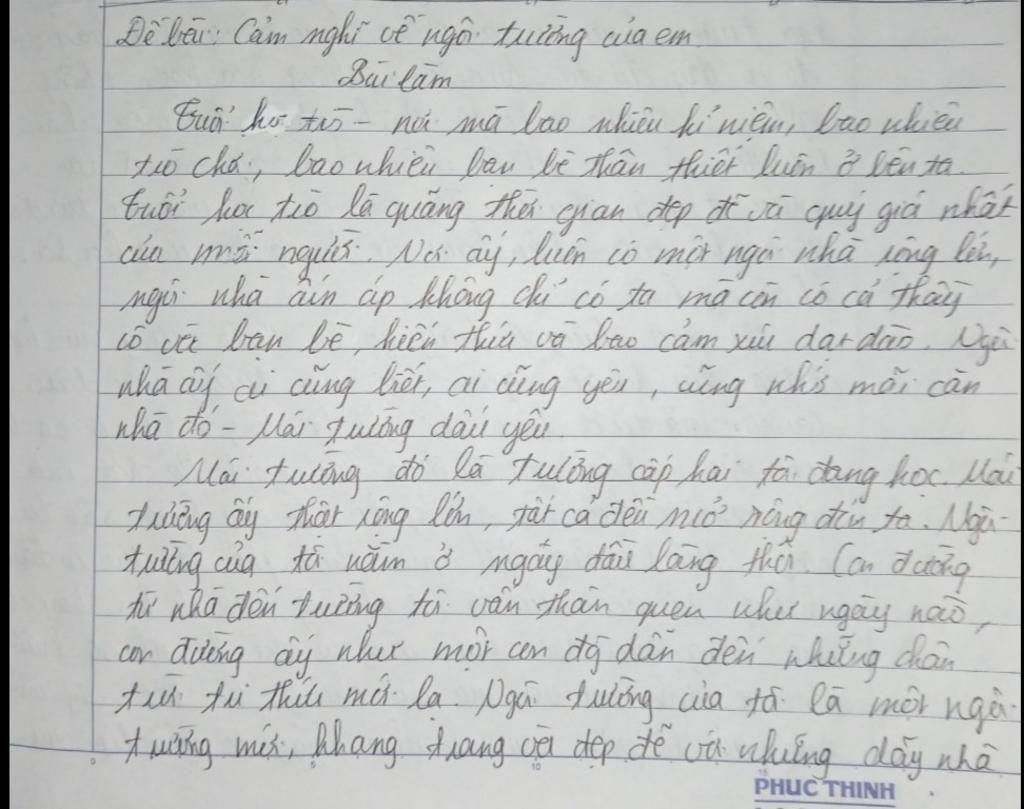 Đề bài: Cảm nghĩ về ngôi trường của em
Bài làm
Tuổi học trò - nơi mà bao nhiêu kỉ niệm, bao nhiêu
trò chơi, bao nhiêu bạn bè thân thiết luôn ở bên ta.
Tuổi học trò là quãng thời gian đẹp đẽ và quý giá nhất
của mỗi người. Nơi ấy, luôn có một ngôi nhà rộng lớn,
ngôi nhà ấm áp không chỉ có ta mà còn có cả thầy
cô với bạn bè, kiến thức và bao cảm xúc dạt dào. Ngôi
nhà ấy ai cũng biết, ai cũng yêu, cũng nhớ mãi căn
nhà đó - Mái trường dấu yêu.
Mái trường đó là trường cấp hai tôi đang học. Mái
trường ấy thật rộng lớn, tất cả đều mở rộng đến ta. Ngôi
trường của tôi nằm ở ngay đầu làng thôi. Con đường
từ nhà đến trường tôi vẫn thân quen như ngày nào,
con đường ấy như một con đò dẫn đến những chân
trời tri thức mới lạ. Ngôi trường của tôi là một ngôi
trường mới, khang trang và đẹp đẽ với những dãy nhà
PHUC THINH